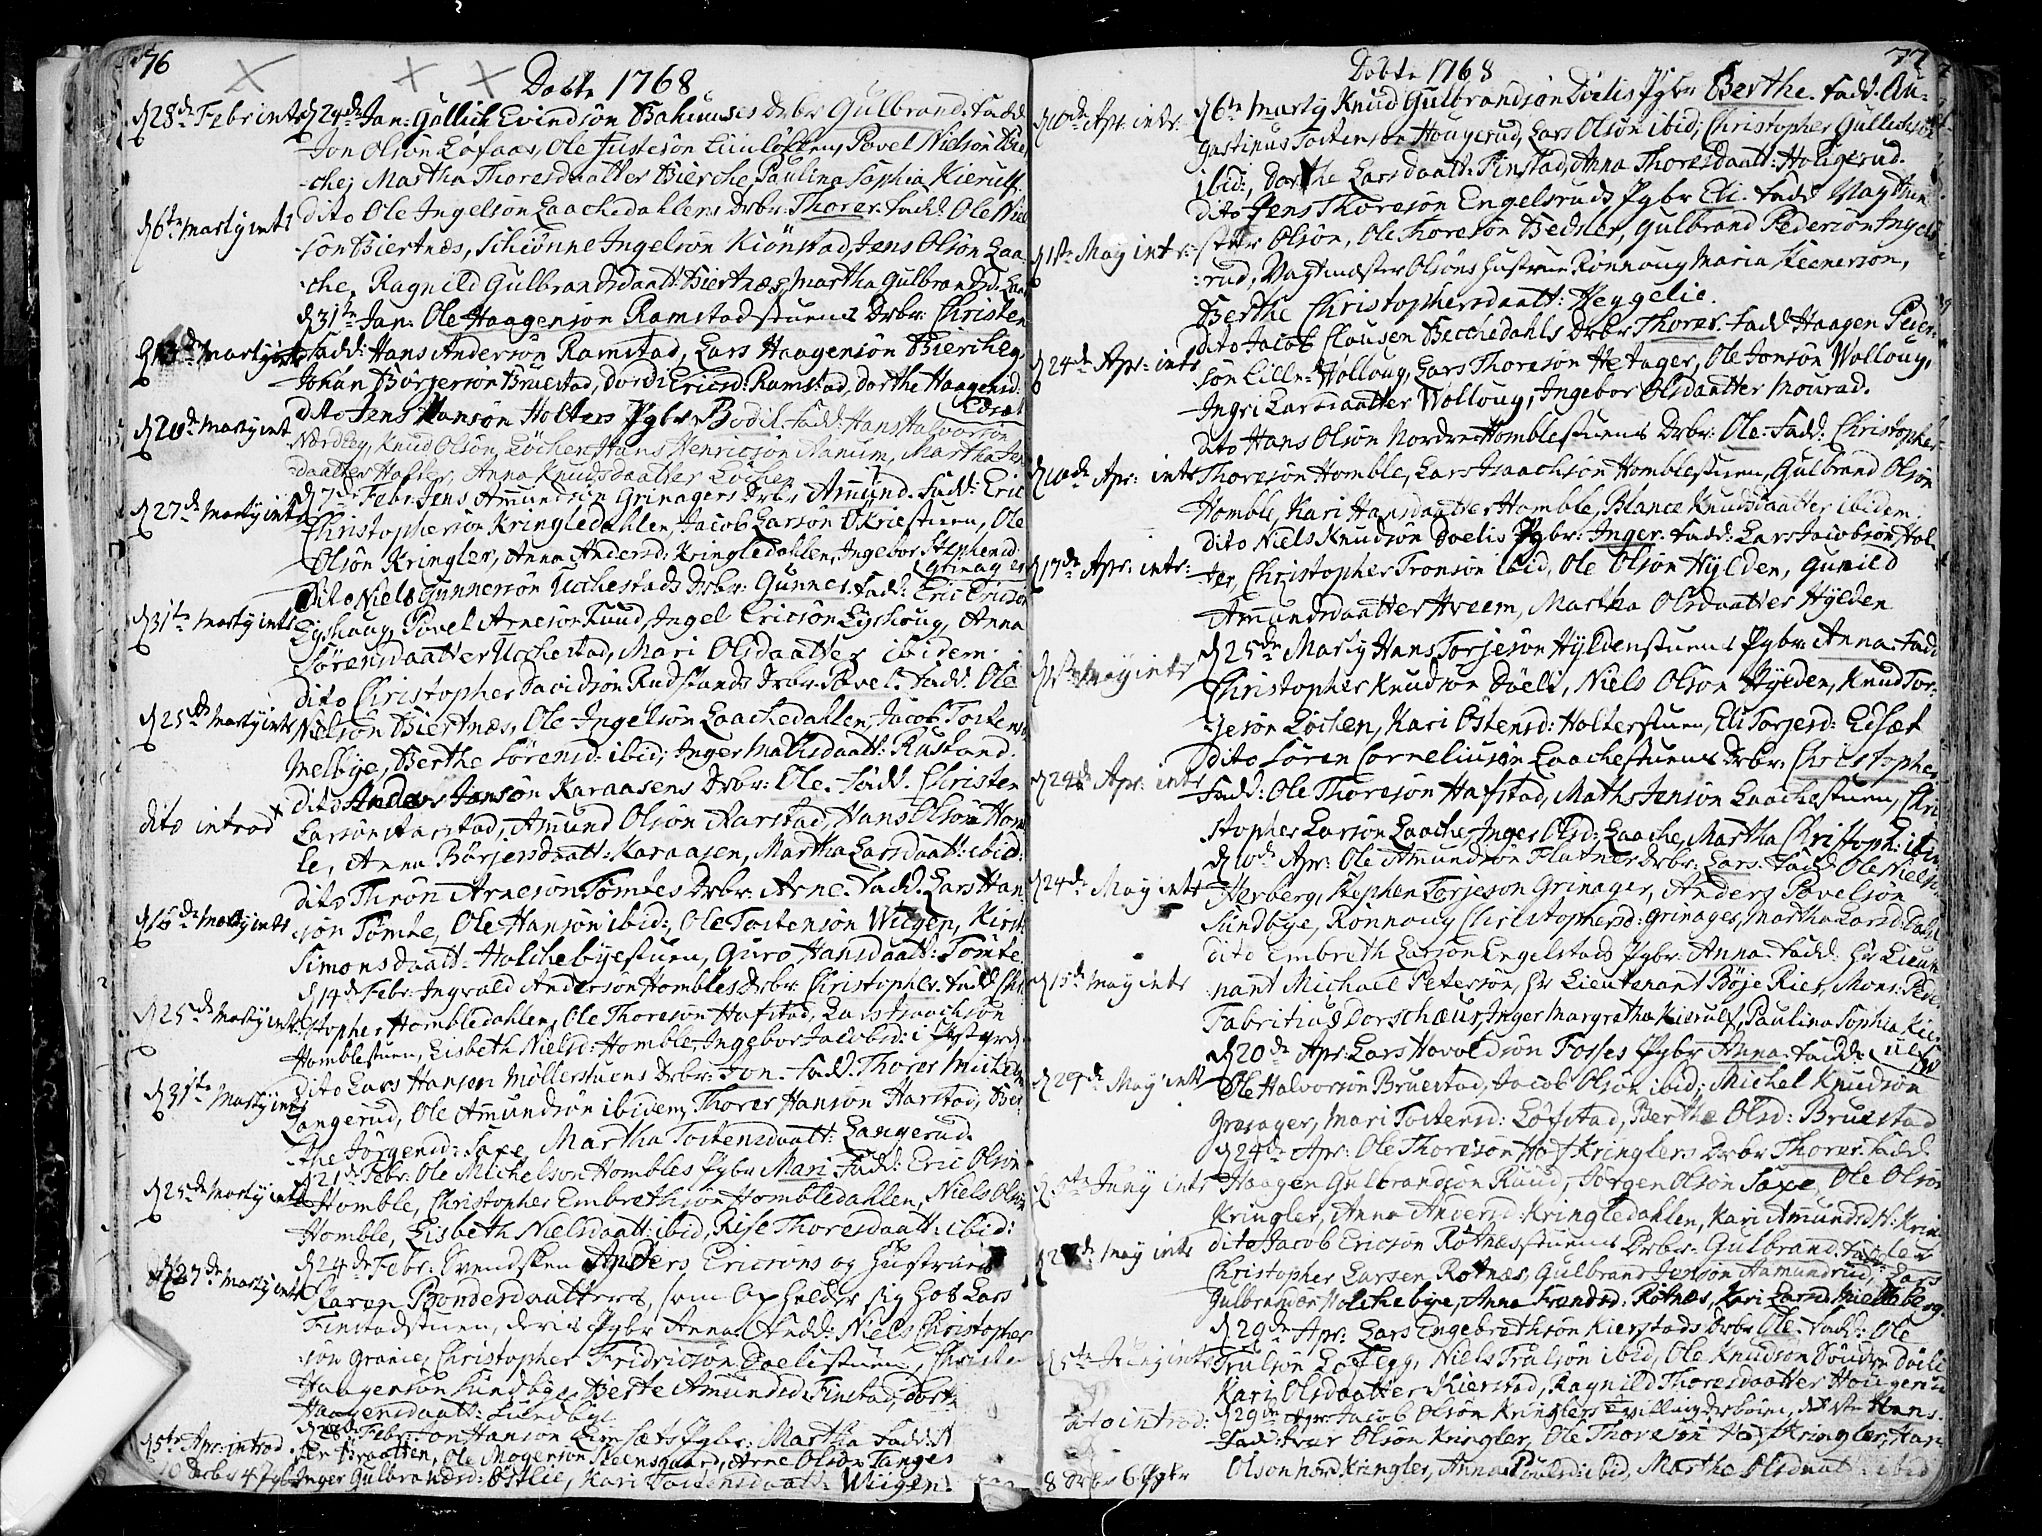 76
Døbte 1768
d 28de Febr: intr
d 24de Jan: Gullich Evindsøn Bahuuses Drbr Gulbrand. Fadd:
Jon Olsøn Løfaas, Ole Justesøn Liinløkken, Povel Nielsøn Bier
che, Martha Thoresdaatter Bierche, Paulina Sophia Kierulf.
d 6te Martij intr
dito Ole Ingelsøn Laachedahlens Drbr: Thorer. Fadd. Ole Niel
søn Biertnæs, Schiønne Ingelsøn Kiønstad, Jens Olsøn Laa
che, Ragnild Gulbrandsdaatt: Biertnæs, Martha Gulbrandsd: Laa
d 31te Jan: Ole Haagensøn Ramstadstuens Drbr: Christen
d 13de Martij intr
Fadd: Hans Andersøn Ramstad, Lars Haagensøn Bierche,
Johan Børgersøn Bruestad, Dordi Ericsd: Ramstad, Dorthe Haagensd:
Edsæt
d 20de Martij int
dito Jens Hansøn Holters Pgbr Bodil. Fadd: Hans Halvorsøn
Nordbye, Knud Olsøn Løchen, Hans Henricsøn Nanum, Martha Jens
daatter Holter, Anna Knudsdaatter Løchen
d 27de Martij intr
d 7de Febr: Jens Amundsøn Grinagers Drbr: Amund. Fadd: Eric
Christophersøn Kringledahlen, Jacob Larsøn Økriestuen, Ole
Olsøn Kringler, Anna Andersd: Kringledahlen, Ingebor Stephensd:
Grinager
d 31te Martij intr
dito Niels Gunnersøn Uchestads Drbr: Gunner. Fadd: Eric Ericsøn
Eyshoug, Povel Arnesøn Ruud, Ingel Ericsøn Eyshoug, Anna
Sørensdaatter Ucchestad, Mari Olsdaatter ibidem.
d 25de Martij intr
dito Christopher Davidsøn Rudstands Drbr: Povel. Fadd. Ole
Nielsøn Biertnæs, Ole Ingelsøn Laachedahlen, Jacob Tostens:
Melbye, Berthe Sørensd: ibid; Inger Mathisdaatt: Rustand.
dito introd
dito Anders Jansøn Karaasens Drbr: Ole. Fadd. Christen
Larsøn Harstad, Amund Olsøn Harstad, Hans Olsøn Hom
le, Anna Børgersdaatt: Karaasen, Martha Larsdaatt: ibid:
d 16de Martij intr
dito Thron Arnesøn Tømtes Drbr: Arne. Fadd. Lars Han
søn Tømte, Ole Hansøn ibid:, Ole Tostensøn Wiigen, Kirst:
Simonsdaatt: Holchebyestuen, Guro Hansdaatt: Tømte
d 25de Martij intr
d 14de Febr: Ingvald Andersøn Hombles Drbr Christopher. Fadd Chri
stopher Hombledahlen, Ole Thoresøn Hafstad, Lars Isaachsøn
Homblestuen, Lisbeth Nielsd: Homble, Ingebor Jacobsd: i
d 31te Martij intr
dito Lars Hansøn Møllerstuens Drbr: Jon. Fadd: Thorer Mickels
Langerud, Ole Amundsøn ibidem, Thorer Hansøn Harstad, Ber
the Jørgensd: Saxe, Martha Tostensdaatt: Langerud.
d 25de Martij intr
d 21de Febr: Ole Michelsøn Hombles Pgbr Mari. Fadd: Eric Olsøn
Homble, Christopher Embrethsøn Hombledahlen, Niels Olsøn
Homble, Lisbeth Nielsdaatt: ibid, Rise Thoresdaatt: ibid:
d 27de Martij intr
d 24de Febr: Svendsken Anders Ericsøns og Hustrues
Karen Bondesdaatters, som opholder sig hos Lars
Finstadstuen, deres Pgbr Anna. Fadd: Niels Christopher
søn Granie, Christopher Fridricsøn Doelistuen, Christen
Haagensøn Sundbye, Berte Amundsd: Finstad, Dorth
Haagensdaatt: Sundbye
d 5te Apr: introd
d 28de Febr: Jon Hansøn Eensæts Pgbr: Martha. Fadd:
Braatten, Ole Mogensøn Steensgaard, Arne Olsøn Tanger
10 Drbr 4 Pgbr
Inger Gulbrandsd: Østlie, Kari Tostensdaatt: Wiigen.
77
Døbte 1768
d 10de Apr: intr
d 6te Martij Knud Gulbrandsøn Doelis Pgbr Berthe. Fadd. Au
gustinus Tostensøn Hougerud, Lars Olsøn ibid; Christopher Gullichsøn
ibid:, Dorthe Larsdaatt: Finstad, Anna Thoresdaatt: Hougerud.
d 1ste May intr:
dito Jens Thoresøn Engelsruds Pgbr Eli. Fadd Vagtme
ster Olsøn, Ole Thoresøn Becher, Gulbrand Pedersøn Ingels
rud, Vagtmæster Olsøns Hustrue Rønnoug Maria Keenersøn,
Berthe Christophersdaatt: Heggelie.
d 24de Apr: intr
dito Jacob Clausen Becchedahls Drbr: Thorer. Fadd Haagen Peder
søn Lille-Wolloug, Lars Thoresøn Hetager, Ole Jonsøn Wolloug,
Ingri Larsdaatter Wolloug, Ingebor Olsdaatter Mourad.
d 10de Apr: intr
dito Hans Olsøn Nordre Homblestuens Drbr: Ole. Fadd: Christopher
Thoresøn Homble, Lars Isaachsøn Homblestuen, Gulbrand Olsøn
Homble, Kari Hansdaatter Homble, Blance Knudsdaatter ibidem.
d 17de Apr: intr:
dito Niels Knudsøn Doelis Pgbr: Inger. Fadd: Lars Jacobsøn Hol
ter, Christopher Tronsøn ibid, Ole Olsøn Hylden, Gunild
Amundsdaatter Hveem, Martha Olsdaatter Hylden
d 1ste May intr
d 25de Martij Hans Torjesøn Hyldenstuens Pgbr: Anna. Fadd
Christopher Knudsøn Doeli, Niels Olsøn Hylden, Knud Tor
jesøn Løchen, Kari Østensd: Holterstuen, Eli Torjesd: Eidsæt
d 24de Apr: intr
dito Søren Corneliusøn Laachestuens Drbr: Christopher
Fadd: Ole Thoresøn Hafstad, Maths Jensøn Laachestuen, Chri
stopher Larsøn Laache, Inger Olsd: Laache, Martha Christoph: ibid
d 24de May intr
d 10de Apr: Ole Amundsøn Flatners Drbr: Lars. Fadd Ole Niels
Herberg, Stephen Torjesøn Grinager, Anders Povelsøn
Sundbye, Rønnoug Christophersd: Grinager, Martha Larsd:
d 15de May intr
dito Embreth Larsøn Engelstads Pgbr: Anna. Fadd: Hr Lieute
nant Michael Petersøn, Hr Lieutenant Bøje Ries, Mons: Peder
Fabritius Dorschæus, Inger Margretha Kierulf, Paulina Sophia Kier
ulf
d 29de May intr
d 20de Apr: Lars Hovoldsøn Fosses Pgbr Anna. Fadd:
Ole Halvorsøn Bruestad, Jacob Olsøn ibid: Michel Knudsøn
Græsager, Mari Tostensd: Løfstad, Berthe Olsd: Bruestad
5te Juny intr
d 24de Apr: Ole Thoresøn Hof Kringlers Drbr Thorer. Fadd
Haagen Gulbrandsøn Ruud, Jørgen Olsøn Saxe, Ole Olsøn
Kringler, Anna Andersd: Kringledahlen, Kari Amundsd: N: Krin
gler
May intr
dito Jacob Ericsøn Rotnæsstuens Drbr: Gulbrand. Fadd
Christopher Larsen Rotnæs, Gulbrand Jensøn Aamundrud, Lars
Gulbrandsøn Holchebye, Anna Frandsd: Rotnæs, Kari Larsd: Mielleberg
5te Juny intr
d 29de Apr: Lars Engebrethsøn Kierstads Drbr Ole. Fadd: Ole
Trulsøn Løfegg, Niels Trulsøn ibid, Ole Knudsøn Søndre Doeli
Kari Olsdaatter Kierstad, Ragnild Thoresdaatter Hougerud
dito introd:
d 29de Apr: Jacob Olsøn Kringlers Tvilling Drbørn, det 1ste Hans.
Fadd: Iver Olsøn Kringler, Ole Thoresøn Hof Kringler, Hans
Olsøn Nord Kringler, Anna Poulsd: ibid, Marthe Olsdaatt: ibid
8 Drbr 6 Pgbr